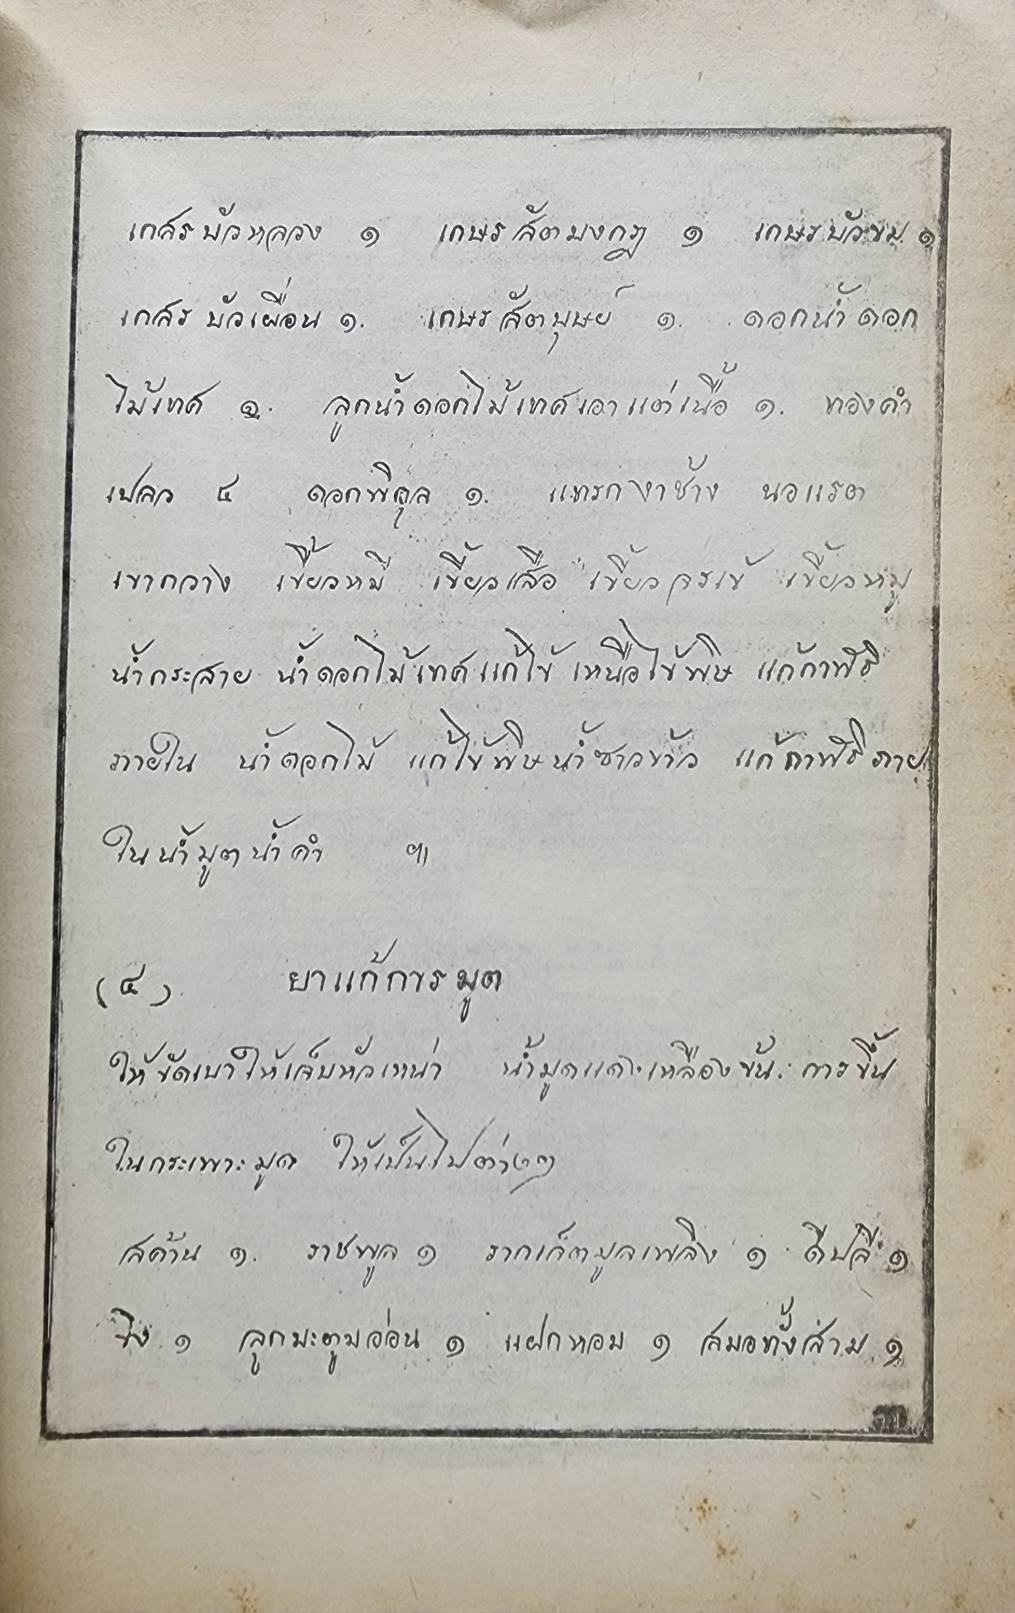 เกสรบัวหลวง ๑ เกษรสัตบงกฎ ๑ เกษรบัวขม ๑
เกสรบัวเผื่อน ๑. เกษรสัตบุษย์ ๑. ดอกน้ำดอก
ไม้เทศ ๑. ลูกน้ำดอกไม้เทศเอาแต่เนื้อ ๑. ทองคำ
เปลว ๔ ดอกพิกุล ๑. แทรกงาช้าง นอแรด
เขากวาง เขี้ยวหมี เขี้ยวเสือ เขี้ยวจรเข้ เขี้ยวหมู
น้ำกระสาย น้ำดอกไม้เทศแก้ไข้ เหนือไข้พิษ แก้กาฬธิ
ภายใน น้ำดอกไม้ แก้ไข้พิษน้ำซาวข้าว แก้กาฬธิภาย
ในน้ำมูตน้ำคำ ฯ
(๔) ยาแก้การมูต
ให้ขัดเบาให้เจ็บหัวเหน่า น้ำมูตแดงเหลืองข้น. การขึ้น
ในกระเพาะมูต ให้เป็นไปต่างๆ
สค้าน ๑. ราชพูล ๑ รากเจ็ตมูลเพลิง ๑ ดีปลี ๑
ขิง ๑ ลูกมะตูมอ่อน ๑ แฝกหอม ๑ สมอทั้งสาม ๑